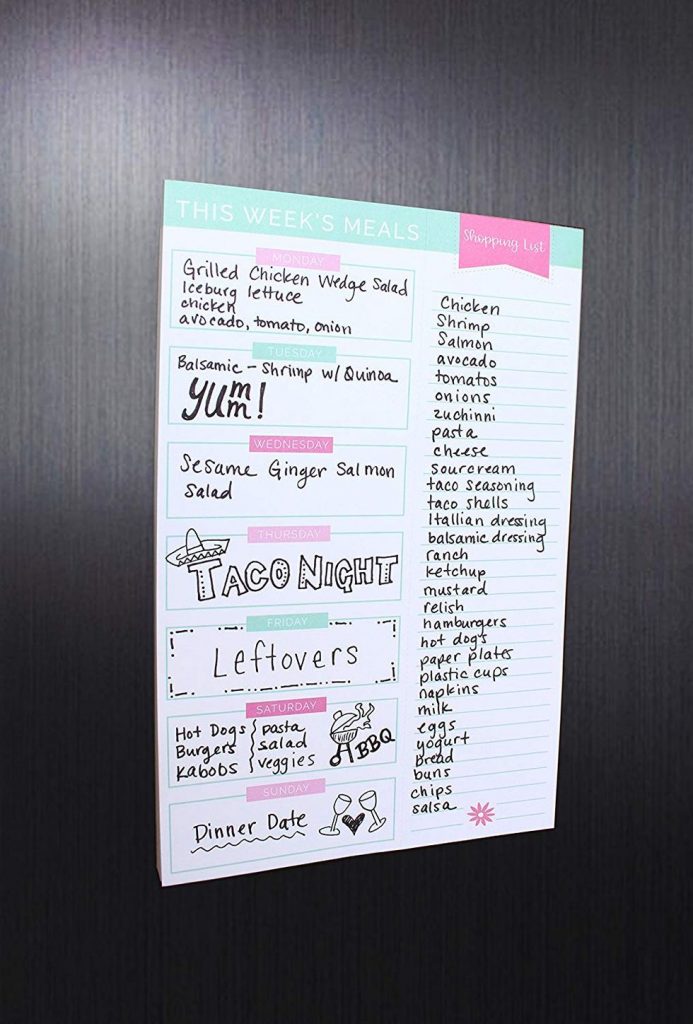 THIS WEEK'S MEALS
MONDAY
Grilled Chicken Wedge Salad
Iceburg lettuce
chicken
avocado, tomato, onion
TUESDAY
Balsamic - Shrimp w/ Quinoa
YUMM!
WEDNESDAY
Sesame Ginger Salmon
Salad
THURSDAY
TACO NIGHT
FRIDAY
Leftovers
SATURDAY
Hot Dogs
Burgers
Kabobs
pasta
salad
veggies
BBQ
SUNDAY
Dinner Date
Shopping List
Chicken
Shrimp
Salmon
avocado
tomatos
onions
zuchinni
pasta
cheese
sourcream
taco seasoning
taco shells
Itallian dressing
balsamic dressing
ranch
ketchup
mustard
relish
hamburgers
hot dogs
paper plates
plastic cups
napkins
milk
eggs
yogurt
bread
buns
chips
salsa